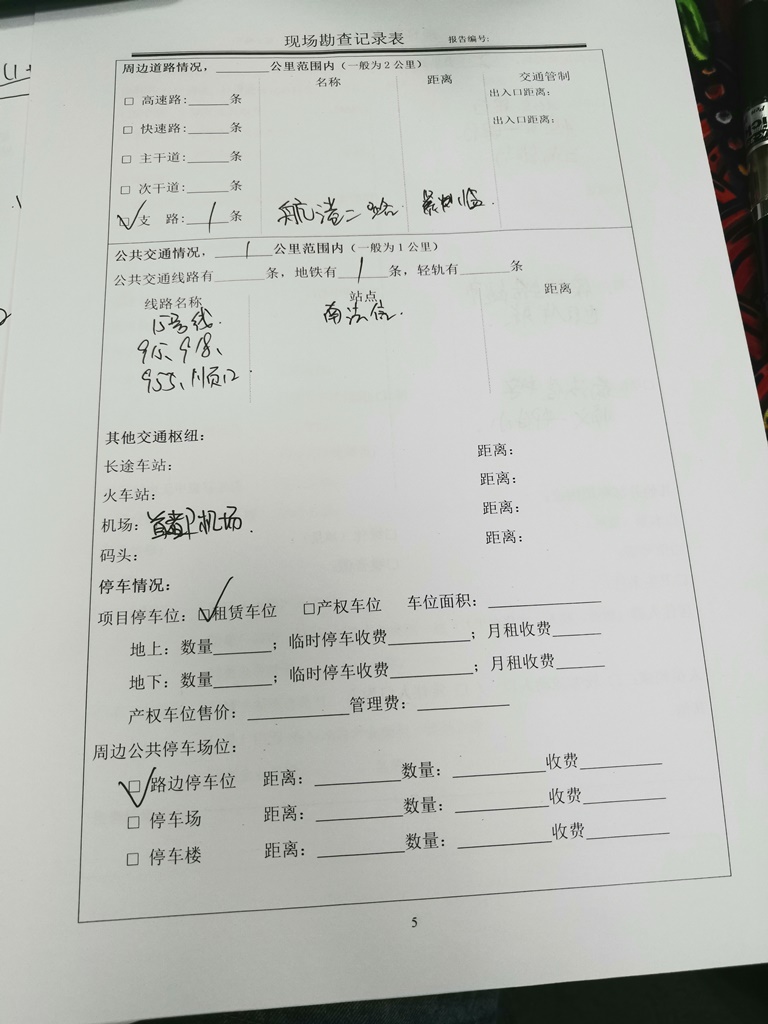 现场勘查记录表 报告编号:
周边道路情况，______公里范围内（一般为2公里）
名称 距离 交通管制
□ 高速路:_____条 出入口距离：
□ 快速路:_____条 出入口距离：
□ 主干道:_____条
□ 次干道:_____条
☑ 支 路: 1 条 航港二路
公共交通情况， 1 公里范围内（一般为1公里）
公共交通线路有______条，地铁有 1 条，轻轨有______条
线路名称 站点 距离
15号线. 南法信.
915、918、
955、顺12.
其他交通枢纽：
长途车站： 距离：
火车站： 距离：
机场：首都机场. 距离：
码头： 距离：
停车情况：
项目停车位：☑租赁车位 □产权车位 车位面积：____________
地上：数量______；临时停车收费________；月租收费_____
地下：数量______；临时停车收费________；月租收费_____
产权车位售价：__________管理费：_________
周边公共停车场位：
☑ 路边停车位 距离：________数量：________收费________
□ 停车场 距离：________数量：________收费________
□ 停车楼 距离：________数量：________收费________
5